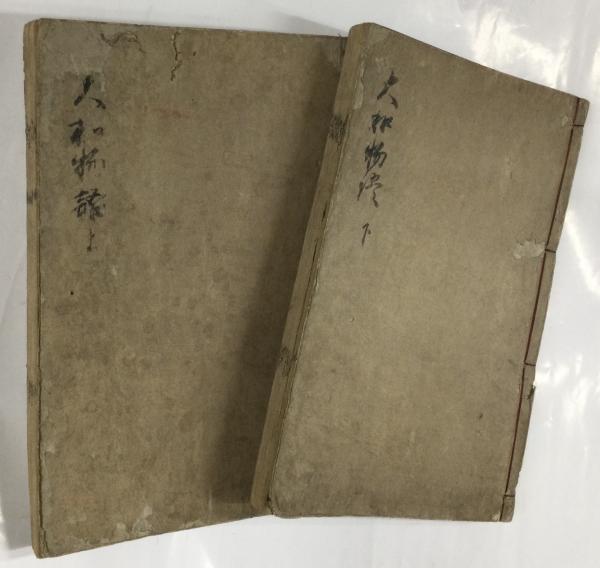 大和物語 上
大和物語 下